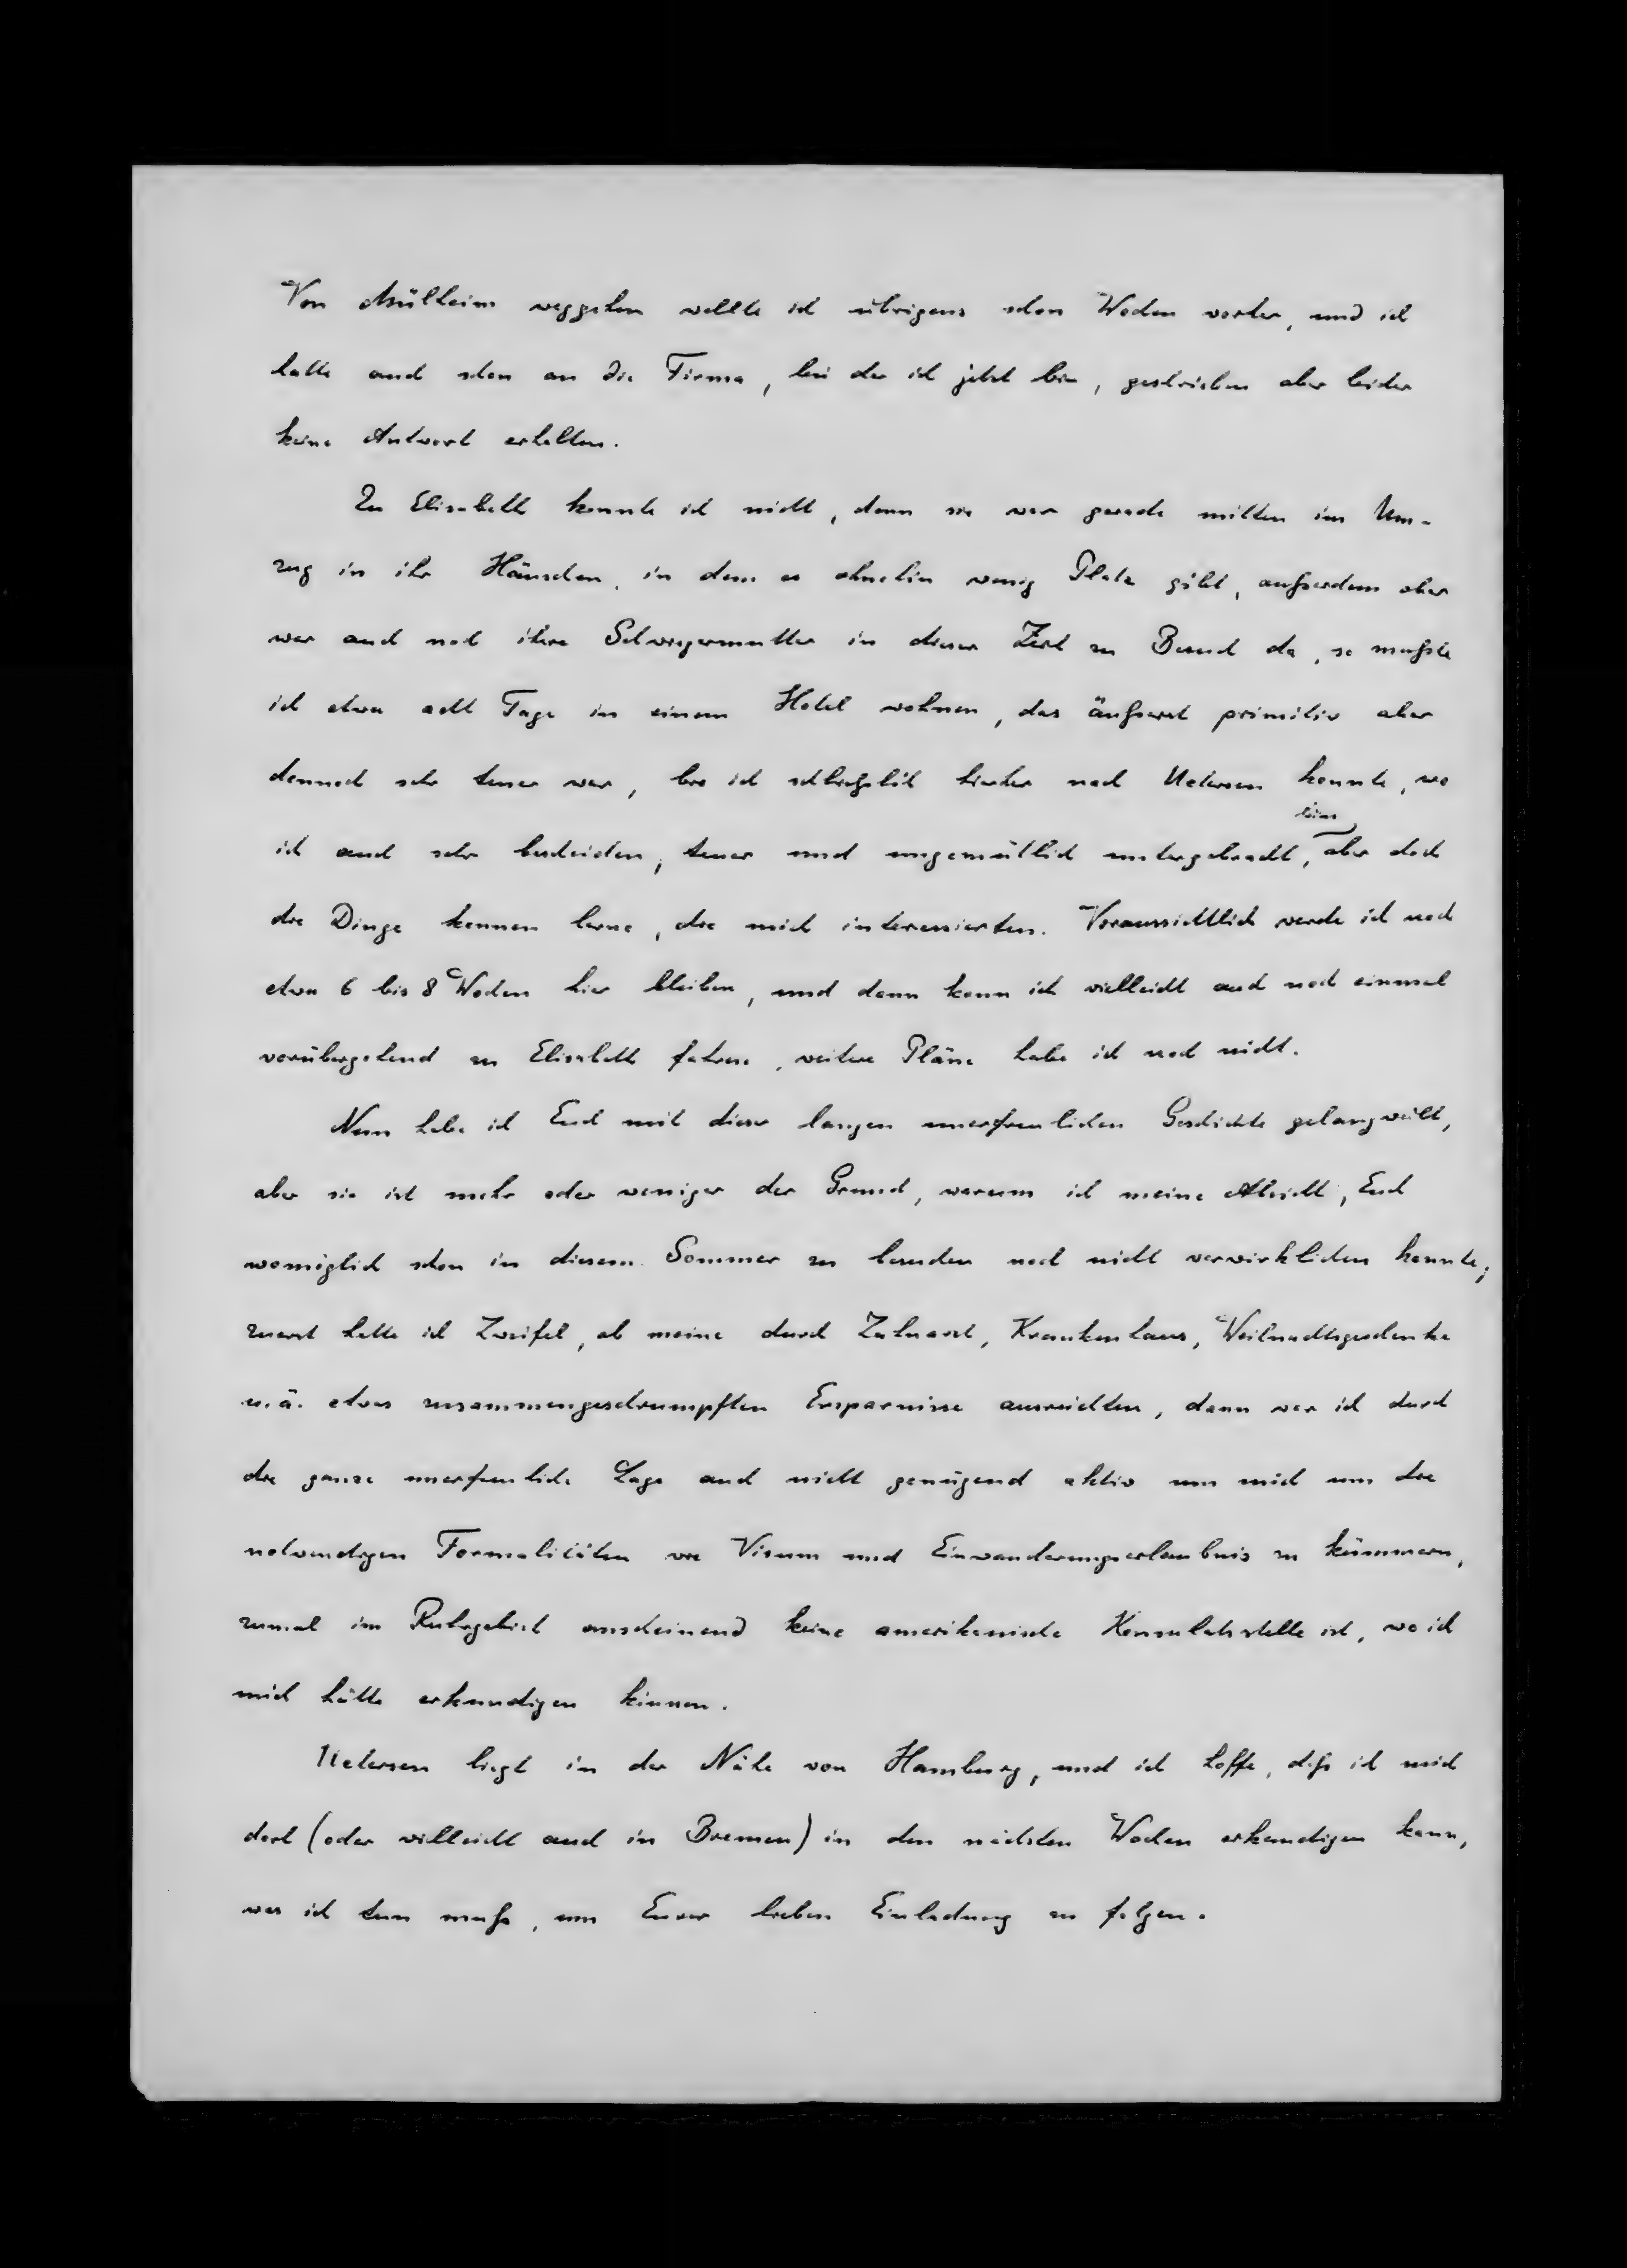 Von Mülheim weggehen wollte ich übrigens schon Wochen vorher, und ich
hatte auch schon an die Firma, bei der ich jetzt bin, geschrieben aber leider
keine Antwort erhalten.
Zu Elisabeth konnte ich nicht, denn sie war gerade mitten im Um-
zug in ihr Häuschen, in dem es ohnehin wenig Platz gibt, außerdem aber
war auch noch ihre Schwiegermutter in dieser Zeit zu Besuch da, so mußte
ich etwa acht Tage in einem Hotel wohnen, das äußerst primitiv aber
dennoch sehr teuer war, bis ich schließlich hierher nach Uetersen konnte, wo
ich auch sehr bescheiden, teuer und ungemütlich untergebracht bin, aber doch
die Dinge kennen lerne, die mich interessierten. Voraussichtlich werde ich noch
etwa 6 bis 8 Wochen hier bleiben, und dann kann ich vielleicht auch noch einmal
vorübergehend zu Elisabeth fahren, weitere Pläne habe ich noch nicht.
Nun habe ich Euch mit dieser langen unerfreulichen Geschichte gelangweilt,
aber sie ist mehr oder weniger der Grund, warum ich meine Absicht, Euch
womöglich schon in diesem Sommer zu besuchen noch nicht verwirklichen konnte;
zuerst hatte ich Zweifel, ob meine durch Zahnarzt, Krankenhaus, Weihnachtsgeschenke
u. ä. etwas zusammengeschrumpften Ersparnisse ausreichten, dann war ich durch
die ganze unerfreuliche Lage auch nicht genügend aktiv um mich um die
notwendigen Formalitäten wie Visum und Einwanderungserlaubnis zu kümmern,
zumal im Ruhrgebiet anscheinend keine amerikanische Konsulatsstelle ist, wo ich
mich hätte erkundigen können.
Uetersen liegt in der Nähe von Hamburg, und ich hoffe, daß ich mich
dort (oder vielleicht auch in Bremen) in den nächsten Wochen erkundigen kann,
was ich tun muß, um Eurer lieben Einladung zu folgen.